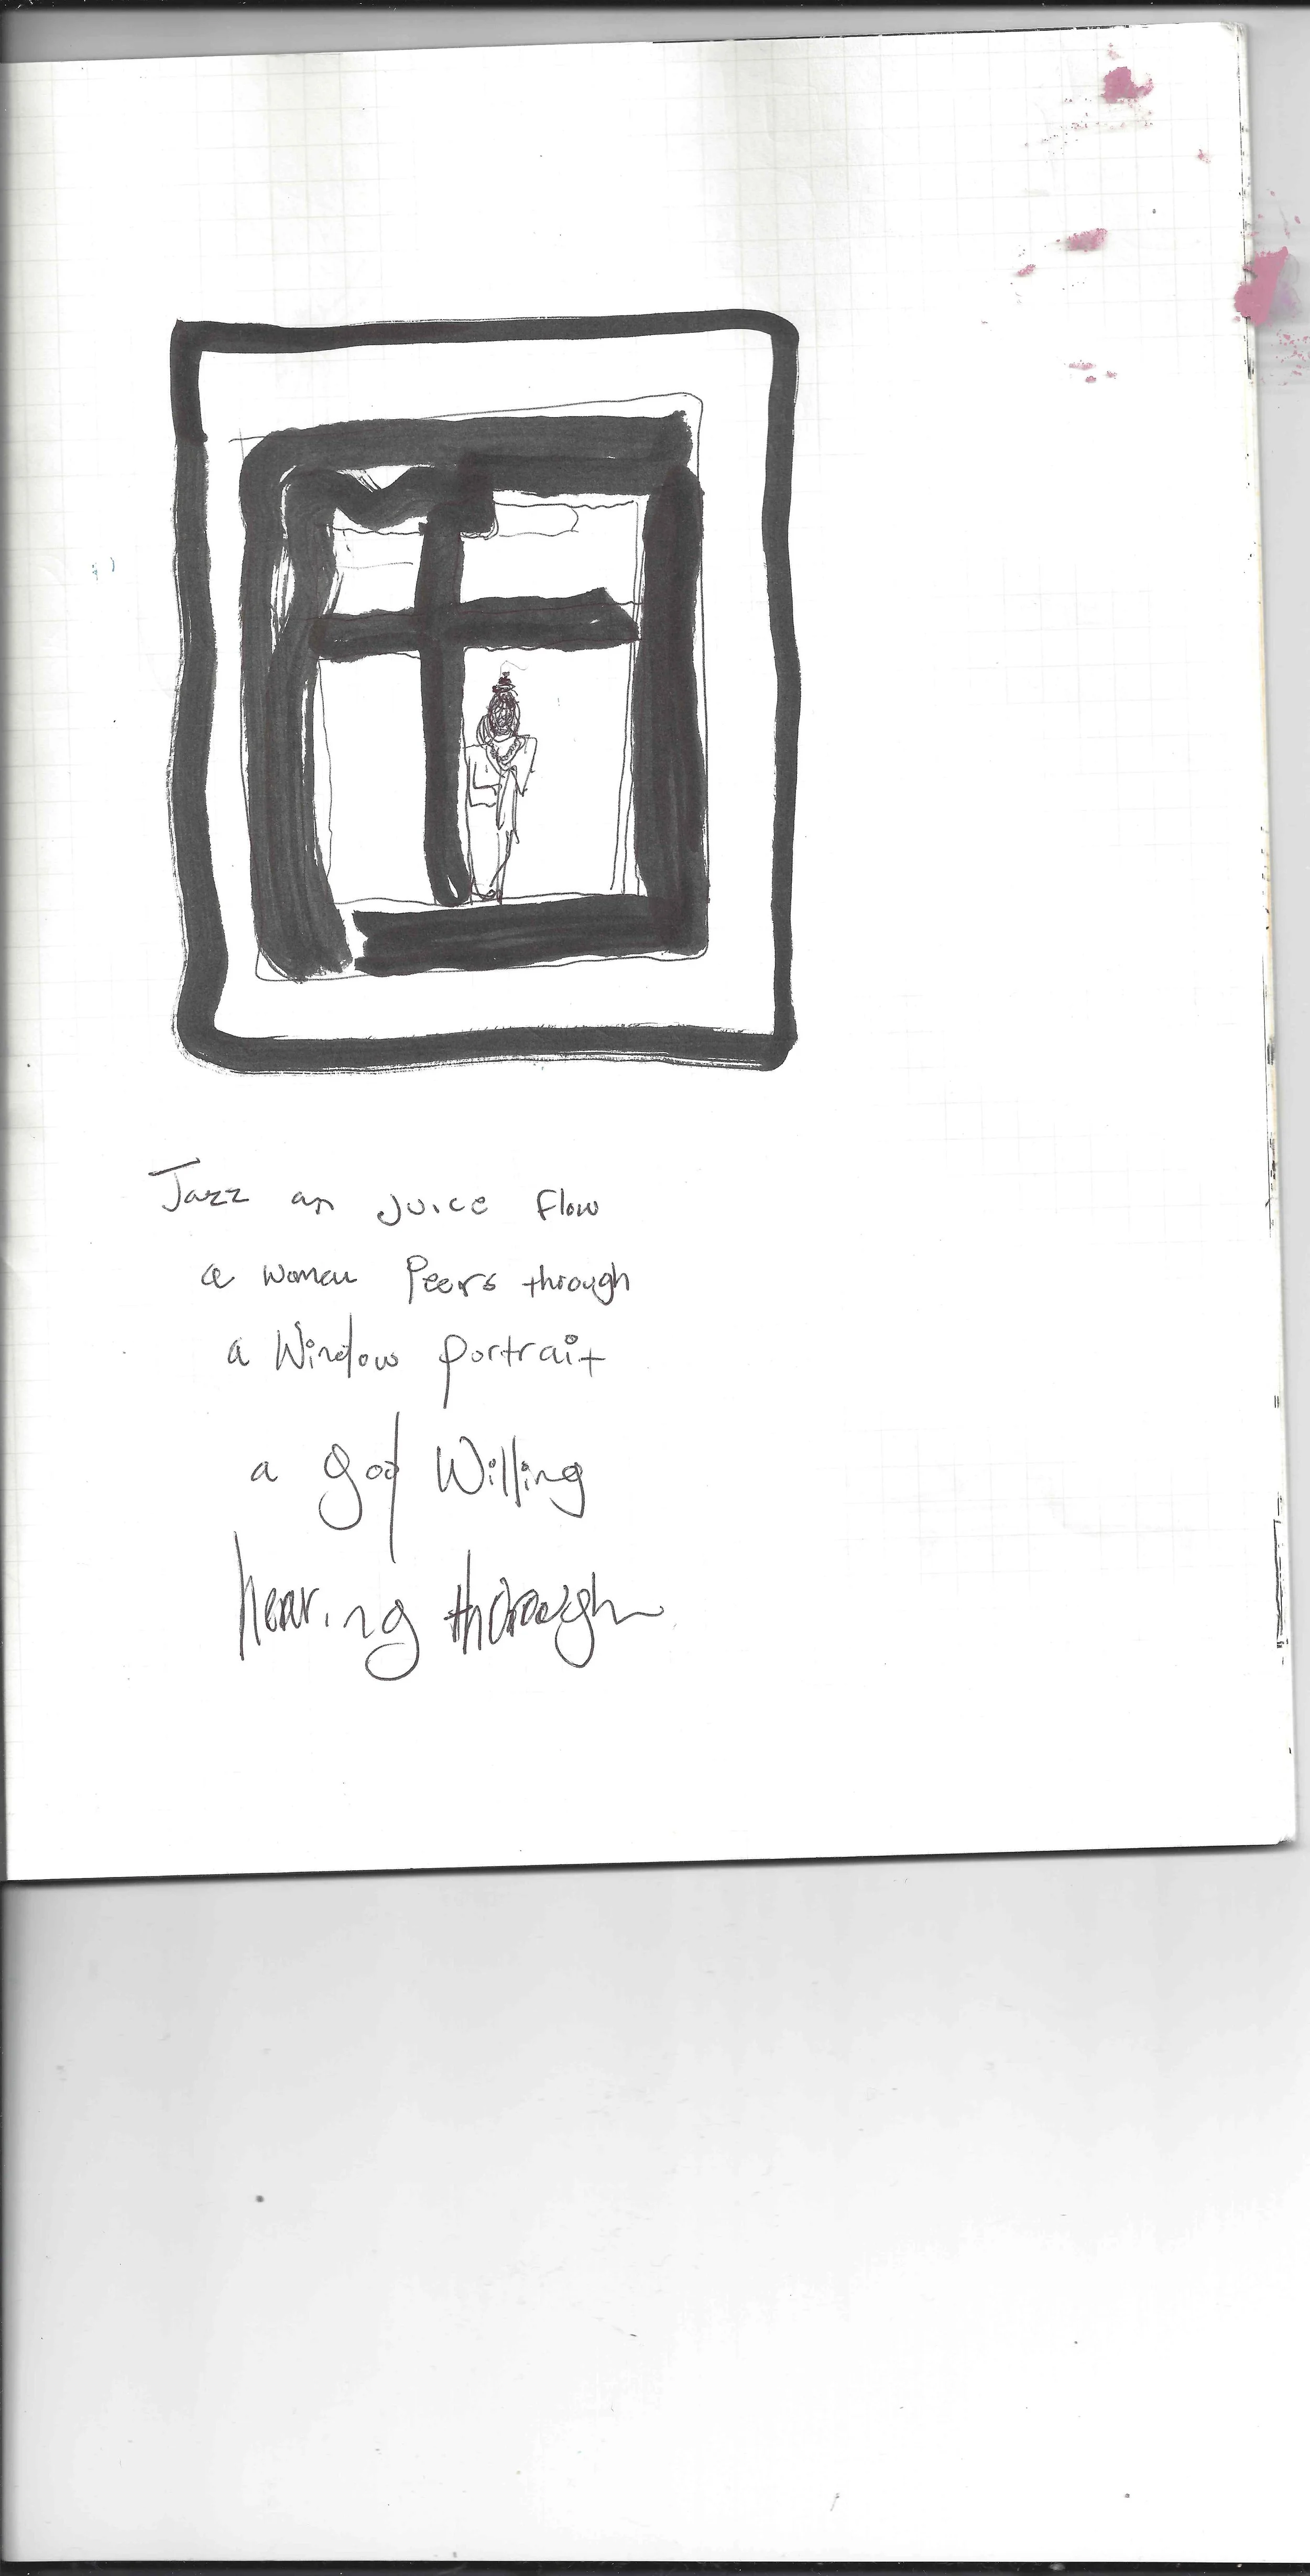 Jazz an Juice flow
a women Peers through
a Window portrait
a god Willing
hearing thorough